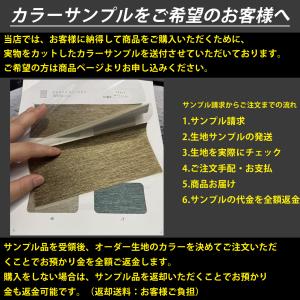 カラーサンプルをご希望のお客様へ
当店では、お客様に納得して商品をご購入いただくために、
実物をカットしたカラーサンプルを送付させていただいております。
ご希望の方は商品ページよりお申し込みください。
サンプル請求からご注文までの流れ
1.サンプル請求
2.生地サンプルの発送
3.生地を実際にチェック
4.ご注文手配・お支払
5.商品お届け
6.サンプルの代金を全額返金
サンプル品を受領後、オーダー生地のカラーを決めてご注文いただ
くことでお預かり金を全額ご返金します。
購入をしない場合は、サンプル品を返却いただくことでお預かり
金も返金可能です。（返却送料：お客様ご負担）